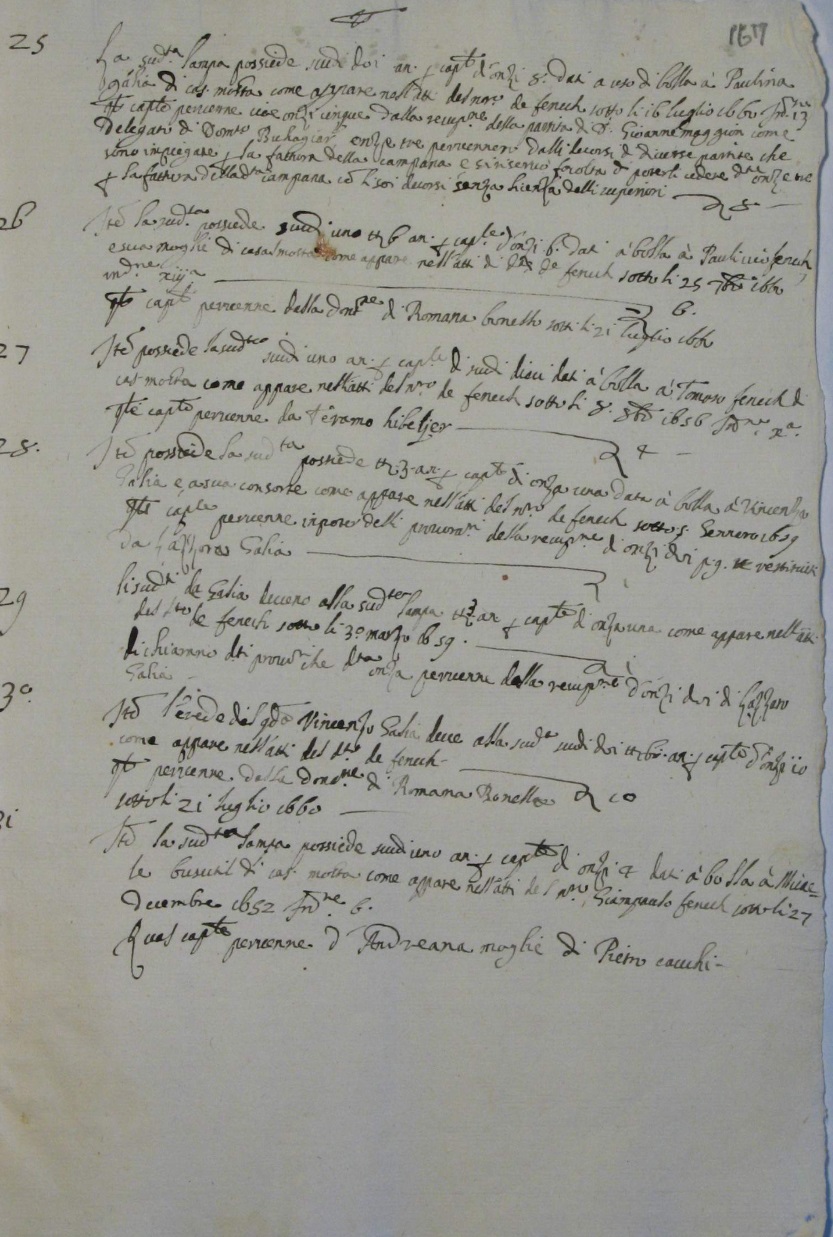 157
25
La sud.ta lampa possiede scudi doi an. p capt.e d'onzi 8. dati a uso di bolla à Paulina
Galia di cas. molta come appare nell'atti del nor.o de fenech sotto li 16 luglio 1660 Ind.ne 13
Qle capt.e pervenne cioe onzi cinque dalla recup.ne della partita di D. Gioanne maggion come
Delegato di Dom.co Buhagiar, onze tre pervennero dalli decorsi di diverse partite che
sono impiegate p la fattura della campana e si riservò facoltà di poterli cedere d.te onze tre
p la fattura della d.ta campana cò li soi decorsi senza licenza delli superiori 8. —
26
Itē la sud.ta possiede scudi uno tt 6 an. p cap.le d'onzi 6. dati à bolla à Paulino fenech
e sua moglie di casal molta come appare nell'atti di de fenech sotto li 25 7bre 1660
ind.ne xiiij.a 6.
Qle capt.e pervenne della don.ne di Romana bonello sotto li 21 luglio 1660
27
Itē possiede la sud.ta scudi uno an. p cap.le di scudi dieci dati à bolla à Tomaso fenech di
cas molta come appare nell'atti del n.ro de fenech sotto li 8. 8bre 1656 Ind.ne x.a
Qle capt.e pervenne da Geramo hibeljer 4 —
28.
Itē possiede la sud.ta possiede tt 3 an. p capt.e di onza una data à bolla à Vincenzo
Galia e a sua consorte come appare nell'atti del n.ro de fenech sotto 5. Gennero 1659
Qle cap.le pervenne in potere delli procurat.ri della recup.ne d'onzi doi restituiti
da Lazzaro Galia 1
29
li sud.ti de Galia deveno alla sud.ta lampa tt 3 an p capt.e d'onza una come appare nell'atti
del d.to de fenech sotto li 30 marzo 1659. 1
dichiarano d.ti procur. che d.ta onza pervenne della recup.ne d'onzi doi di Lazzaro
Galia —
30
Itē l'erede del qd.m Vincenzo Galia deve alla sud.ta scudi doi tt 6 an. p capt.e d'onze 10
come appare nell'atti del d.to de fenech — 10
Qle pervenne della don.ne di Romana Bonello
sotto li 21 luglio 1660
31
Itē la sud.ta lampa possiede scudi uno an. p capt.e di onzi 4 dati à bolla à Mic-
le busutil di cas. molta come appare nell'atti del n.ro Giampaulo fenech sotto li 27
Decembre 1652 Ind.ne 6.
Qual capt.e pervenne d'Andreana moglie di Pietro cacchi —